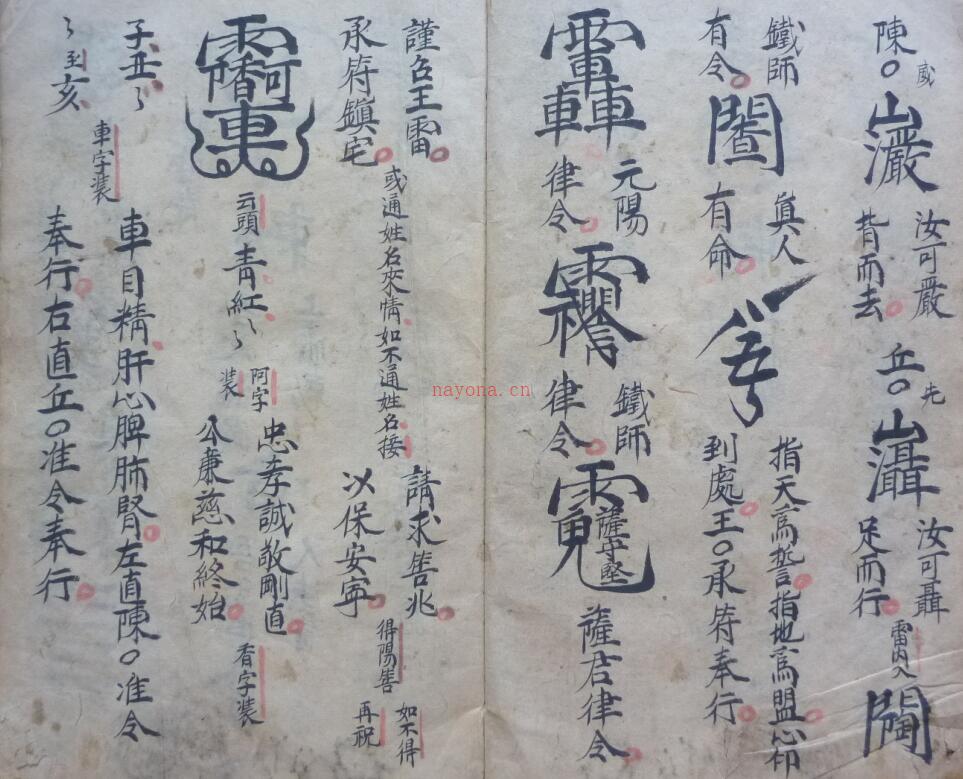 陳○ 威
汝可嚴
背而去
丘○ 先
汝可聶
足而行
雷内入
鐵師
有令
真人
有命
指天爲誓指地爲盟心印
到處王○承符奉行
元陽
律令
鐵師
律令
薩守堅
薩君律令
謹召王雷
承符鎮宅
或通姓名來情如不通姓名接
請求善兆
以保安寧
得陽善
如不得
再祝
雲頭
青紅〻
阿字
装
忠孝誠敬剛直
公廉慈和終始
香字装
子丑〻
〻到亥
車字装
車目精肝心脾肺腎左直陳○准令
奉行右直丘○准令奉行
nayona.cn